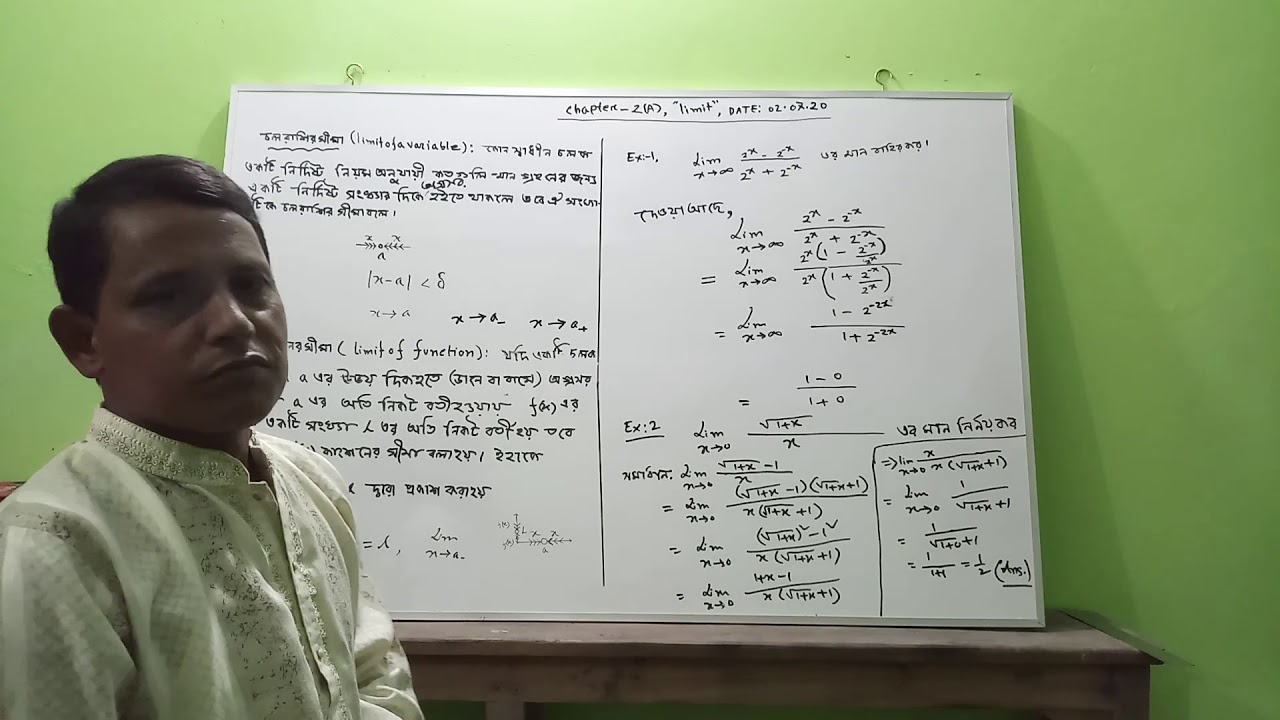 Chapter-2(A), "limit", DATE: 02.07.20
চলরাশির সীমা (limit of a variable): কোন স্বাধীন চলক
একটি নির্দিষ্ট নিয়ম অনুযায়ী কতগুলি মান গ্রহনের জন্য
একটি নির্দিষ্ট সংখ্যার দিকে অগ্রসর হইতে থাকলে তবে ঐ সংখ্যা-
টিকে চলরাশির সীমা বলে।
x x
a
|x-a| < δ
x→a x→a₋ x→a₊
সীমা (limit of function): যদি একটি চলক
a এর উভয় দিক হতে (ডানে বা বামে) অগ্রসর
a এর অতি নিকটবর্তী হওয়ায় f(x) এর
একটি সংখ্যা l এর অতি নিকটবর্তী হয় তবে
ফাংশনের সীমা বলা হয়। ইহাকে
দ্বারা প্রকাশ করা হয়
= l, Lim x→a₋
Ex:-1, Lim x→∞ (2ˣ - 2⁻ˣ)/(2ˣ + 2⁻ˣ) এর মান বাহির কর।
দেওয়া আছে,
Lim x→∞ (2ˣ - 2⁻ˣ)/(2ˣ + 2⁻ˣ)
= Lim x→∞ 2ˣ(1 - 2⁻ˣ/2ˣ)/2ˣ(1 + 2⁻ˣ/2ˣ)
= Lim x→∞ (1 - 2⁻²ˣ)/(1 + 2⁻²ˣ)
= (1 - 0)/(1 + 0)
Ex:2 Lim x→0 √(1+x)/x এর মান নির্নয় কর
সমাধান: Lim x→0 (√(1+x) - 1)/x
= Lim x→0 (√(1+x) - 1)(√(1+x) + 1)/x(√(1+x) + 1)
= Lim x→0 ((√(1+x))² - 1²)/x(√(1+x) + 1)
= Lim x→0 (1+x-1)/x(√(1+x) + 1)
=> lim x→0 x/x(√(1+x) + 1)
= Lim x→0 1/(√(1+x) + 1)
= 1/(√(1+0) + 1)
= 1/(1+1) = 1/2 (Ans.)